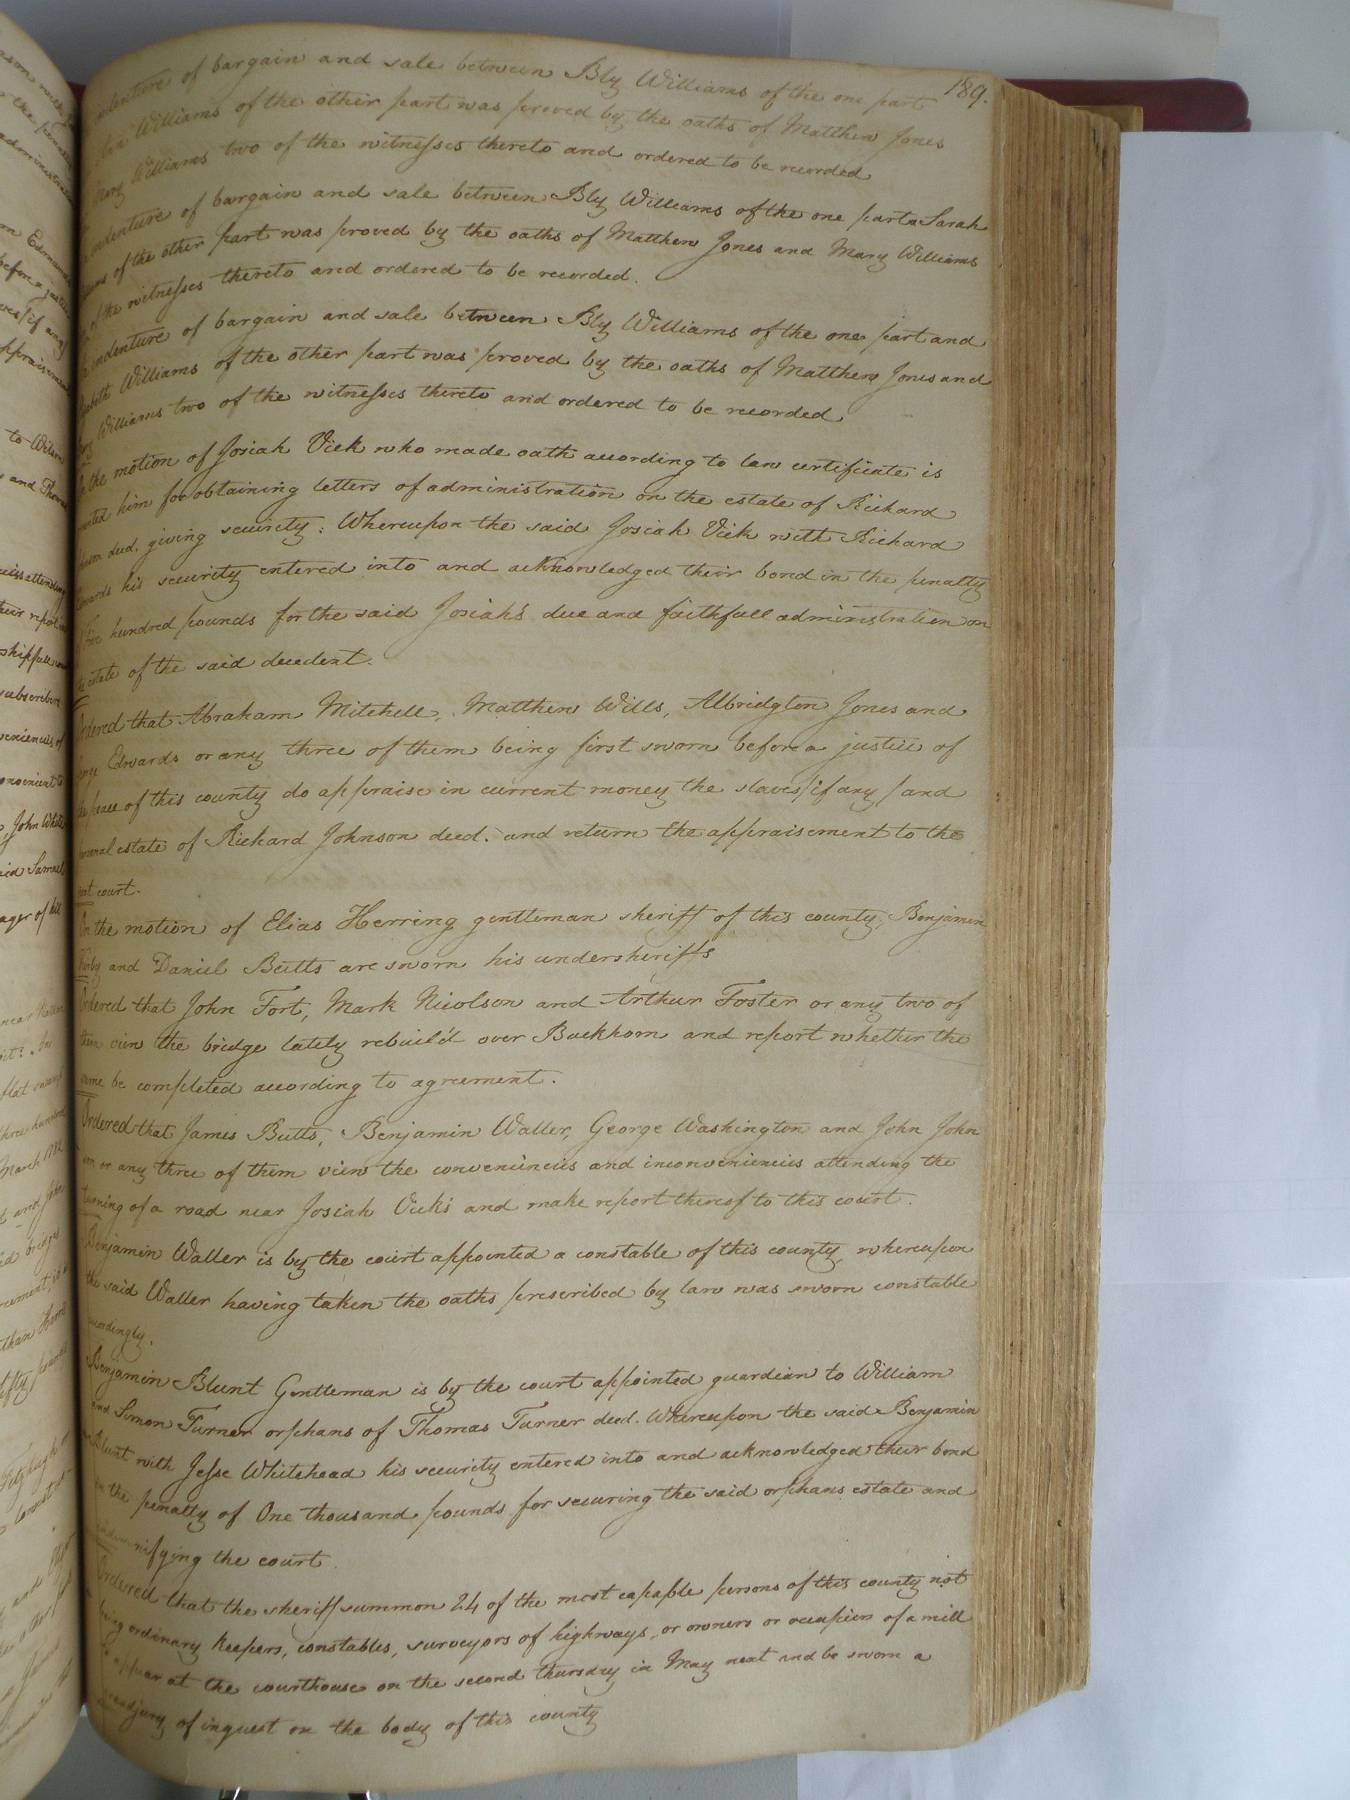 189.
indenture of bargain and sale between Bly Williams of the one part
Williams of the other part was proved by the oaths of Matthew Jones
Mary Williams two of the witnesses thereto and ordered to be recorded
indenture of bargain and sale between Bly Williams of the one part & Sarah
of the other part was proved by the oaths of Matthew Jones and Mary Williams
of the witnesses thereto and ordered to be recorded.
indenture of bargain and sale between Bly Williams of the one part and
Williams of the other part was proved by the oaths of Matthew Jones and
Williams two of the witnesses thereto and ordered to be recorded
the motion of Josiah Vick who made oath according to law certificate is
him for obtaining letters of administration on the estate of Richard
decd. giving security: Whereupon the said Josiah Vick with Richard
his security entered into and acknowledged their bond in the penalty
hundred pounds for the said Josiah's due and faithfull administration on
estate of the said decedent.
Ordered that Abraham Mitchell, Matthew Wills, Albridgton Jones and
Edwards or any three of them being first sworn before a justice of
the peace of this county do appraise in current money the slaves/if any/and
personal estate of Richard Johnson decd. and return the appraisement to the
next court.
On the motion of Elias Herring gentleman sheriff of this county, Benjamin
Kirby and Daniel Butts are sworn his undersheriffs
Ordered that John Fort, Mark Nicolson and Arthur Foster or any two of
them view the bridge lately rebuild over Buckhorn and report whether the
same be completed according to agreement.
Ordered that James Butts, Benjamin Waller, George Washington and John John
son or any three of them view the conveniencies and inconveniencies attending the
turning of a road near Josiah Vicks and make report thereof to this court.
Benjamin Waller is by the court appointed a constable of this county, whereupon
the said Waller having taken the oaths prescribed by law was sworn constable
accordingly.
Benjamin Blunt Gentleman is by the court appointed guardian to William
and Simon Turner orphans of Thomas Turner decd. Whereupon the said Benjamin
Blunt with Jesse Whitehead his security entered into and acknowledged their bond
in the penalty of One thousand pounds for securing the said orphans estate and
indemnifying the court
Ordered that the sheriff summon 24 of the most capable persons of this county not
being ordinary keepers, constables, surveyors of highways, or owners or occupiers of a mill
to appear at the courthouse on the second thursday in May next and be sworn a
grandjury of inquest on the body of this county